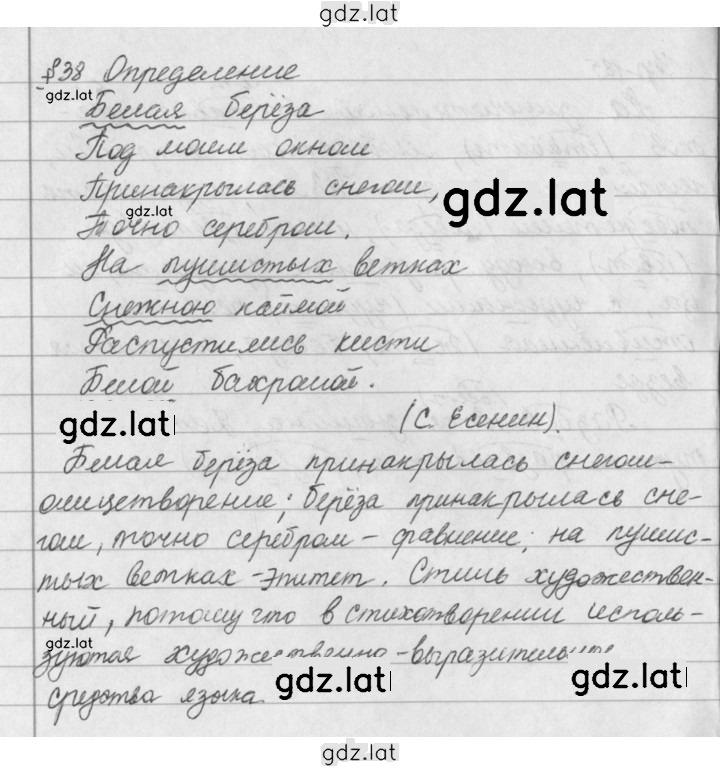 gdz.lat
§38 Определение
gdz.lat
Белая берёза
Под моим окном
Принакрылась снегом,
gdz.lat
gdz.lat
Точно серебром.
На пушистых ветках
Снежною каймой
Распустились кисти
Белой бахромой.
gdz.lat
(С. Есенин).
Белая берёза принакрылась снегом-
олицетворение; берёза принакрылась сне-
гом, точно серебром - сравнение; на пушис-
тых ветках - эпитет. Стиль художествен-
ный, потому что в стихотворении исполь-
gdz.lat
зуются художественно-выразительные
gdz.lat
gdz.lat
средства языка
gdz.lat